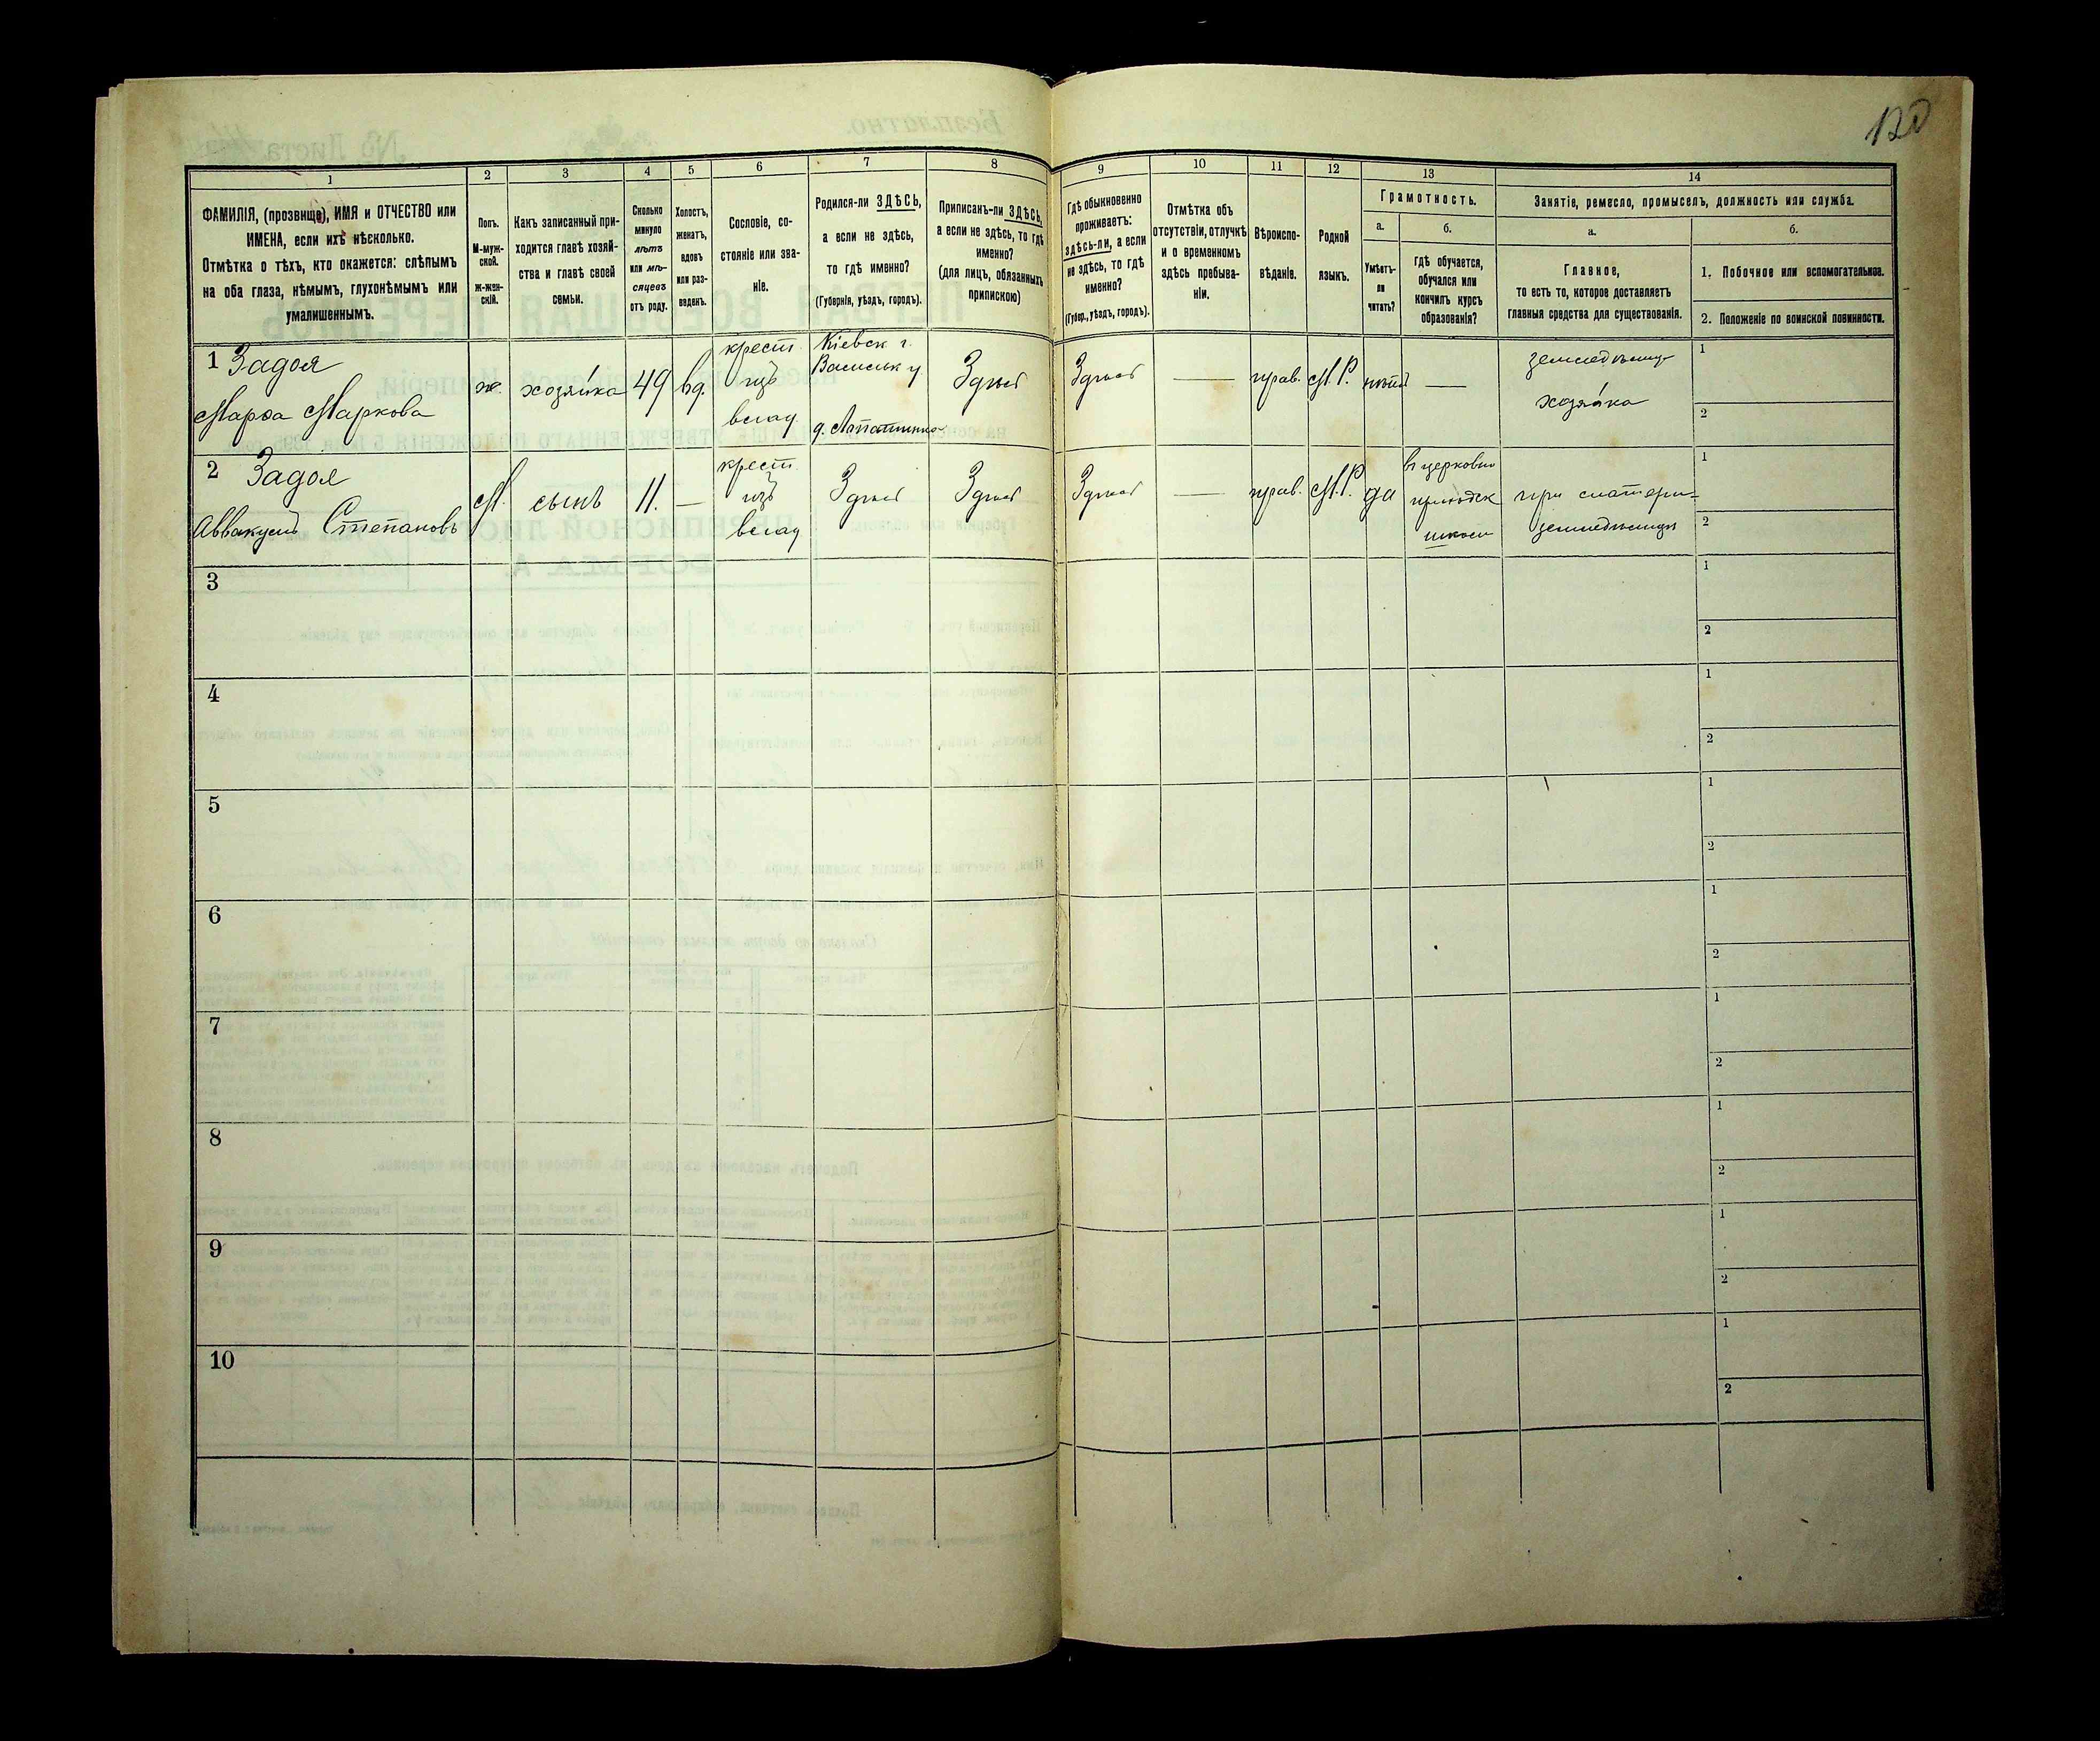 120
1
2
3
4
5
6
7
8
9
10
11
12
13
14
ФАМИЛІЯ, (прозвище), ИМЯ и ОТЧЕСТВО или
ИМЕНА, если ихъ нѣсколько.
Отмѣтка о тѣхъ, кто окажется: слѣпымъ
на оба глаза, нѣмымъ, глухонѣмымъ или
умалишеннымъ.
Полъ.
М-муж-
ской.
Ж-жен-
скій.
Какъ записанный при-
ходится главѣ хозяй-
ства и главѣ своей
семьи.
Сколько
минуло
лѣтъ
или мѣ-
сяцевъ
отъ роду.
Холостъ,
женатъ,
вдовъ
или раз-
веденъ.
Сословіе, со-
стояніе или зва-
ніе.
Родился-ли ЗДѢСЬ,
а если не здѣсь,
то гдѣ именно?
(Губернія, уѣздъ, городъ).
Приписанъ-ли ЗДѢСЬ,
а если не здѣсь, то гдѣ
именно?
(для лицъ, обязанныхъ
припискою)
Гдѣ обыкновенно
проживаетъ:
здѣсь-ли, а если
не здѣсь, то гдѣ
именно?
(Губер., уѣздъ, городъ).
Отмѣтка объ
отсутствіи, отлучкѣ
и о временномъ
здѣсь пребыва-
ніи.
Вѣроиспо-
вѣданіе.
Родной
языкъ.
Грамотность.
а.
Умѣетъ-
ли
читать?
б.
гдѣ обучается,
обучался или
кончилъ курсъ
образованія?
Занятіе, ремесло, промыселъ, должность или служба.
а.
Главное,
то есть то, которое доставляетъ
главныя средства для существованія.
б.
1. Побочное или вспомогательное.
2. Положеніе по воинской повинности.
1 Задоя
Марфа Маркова
ж.
хозяйка
49
вд.
крест.
изъ
влад
Кіевск г.
Васильк у
Здѣсь
Здѣсь
—
прав.
М.Р.
нѣтъ
—
хозяйка
1
2
2 Задоя
Аввакумъ Степановъ
М.
сынъ
11.
—
крест.
изъ
влад
Здѣсь
Здѣсь
Здѣсь
—
прав.
М.Р.
да
въ церковно
приходск
школѣ
при матери-
1
2
3
1
2
4
1
2
5
1
2
6
1
2
7
1
2
8
1
2
9
1
2
10
1
2